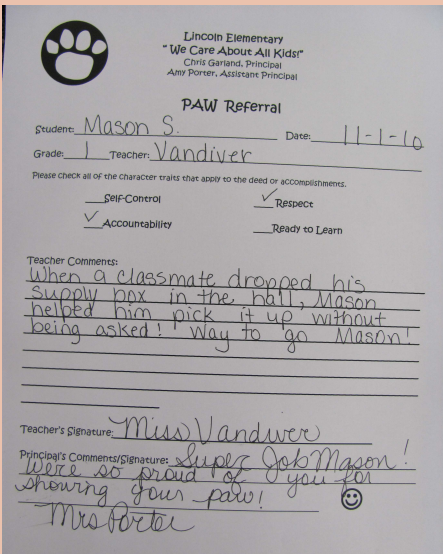 Lincoln Elementary
"We Care About All Kids!"
Chris Garland, Principal
Amy Porter, Assistant Principal
PAW Referral
Student: Mason S. Date: 11-1-10
Grade: 1 Teacher: Vandiver
Please check all of the character traits that apply to the deed or accomplishments.
Self-Control ✓ Respect
✓ Accountability Ready to Learn
Teacher Comments:
When a classmate dropped his
supply box in the hall, Mason
helped him pick it up without
being asked! Way to go Mason!
Teacher's Signature: Miss Vandiver
Principal's Comments/Signature: Super Job Mason!
We're so proud of you for
showing your paw!
Mrs Porter